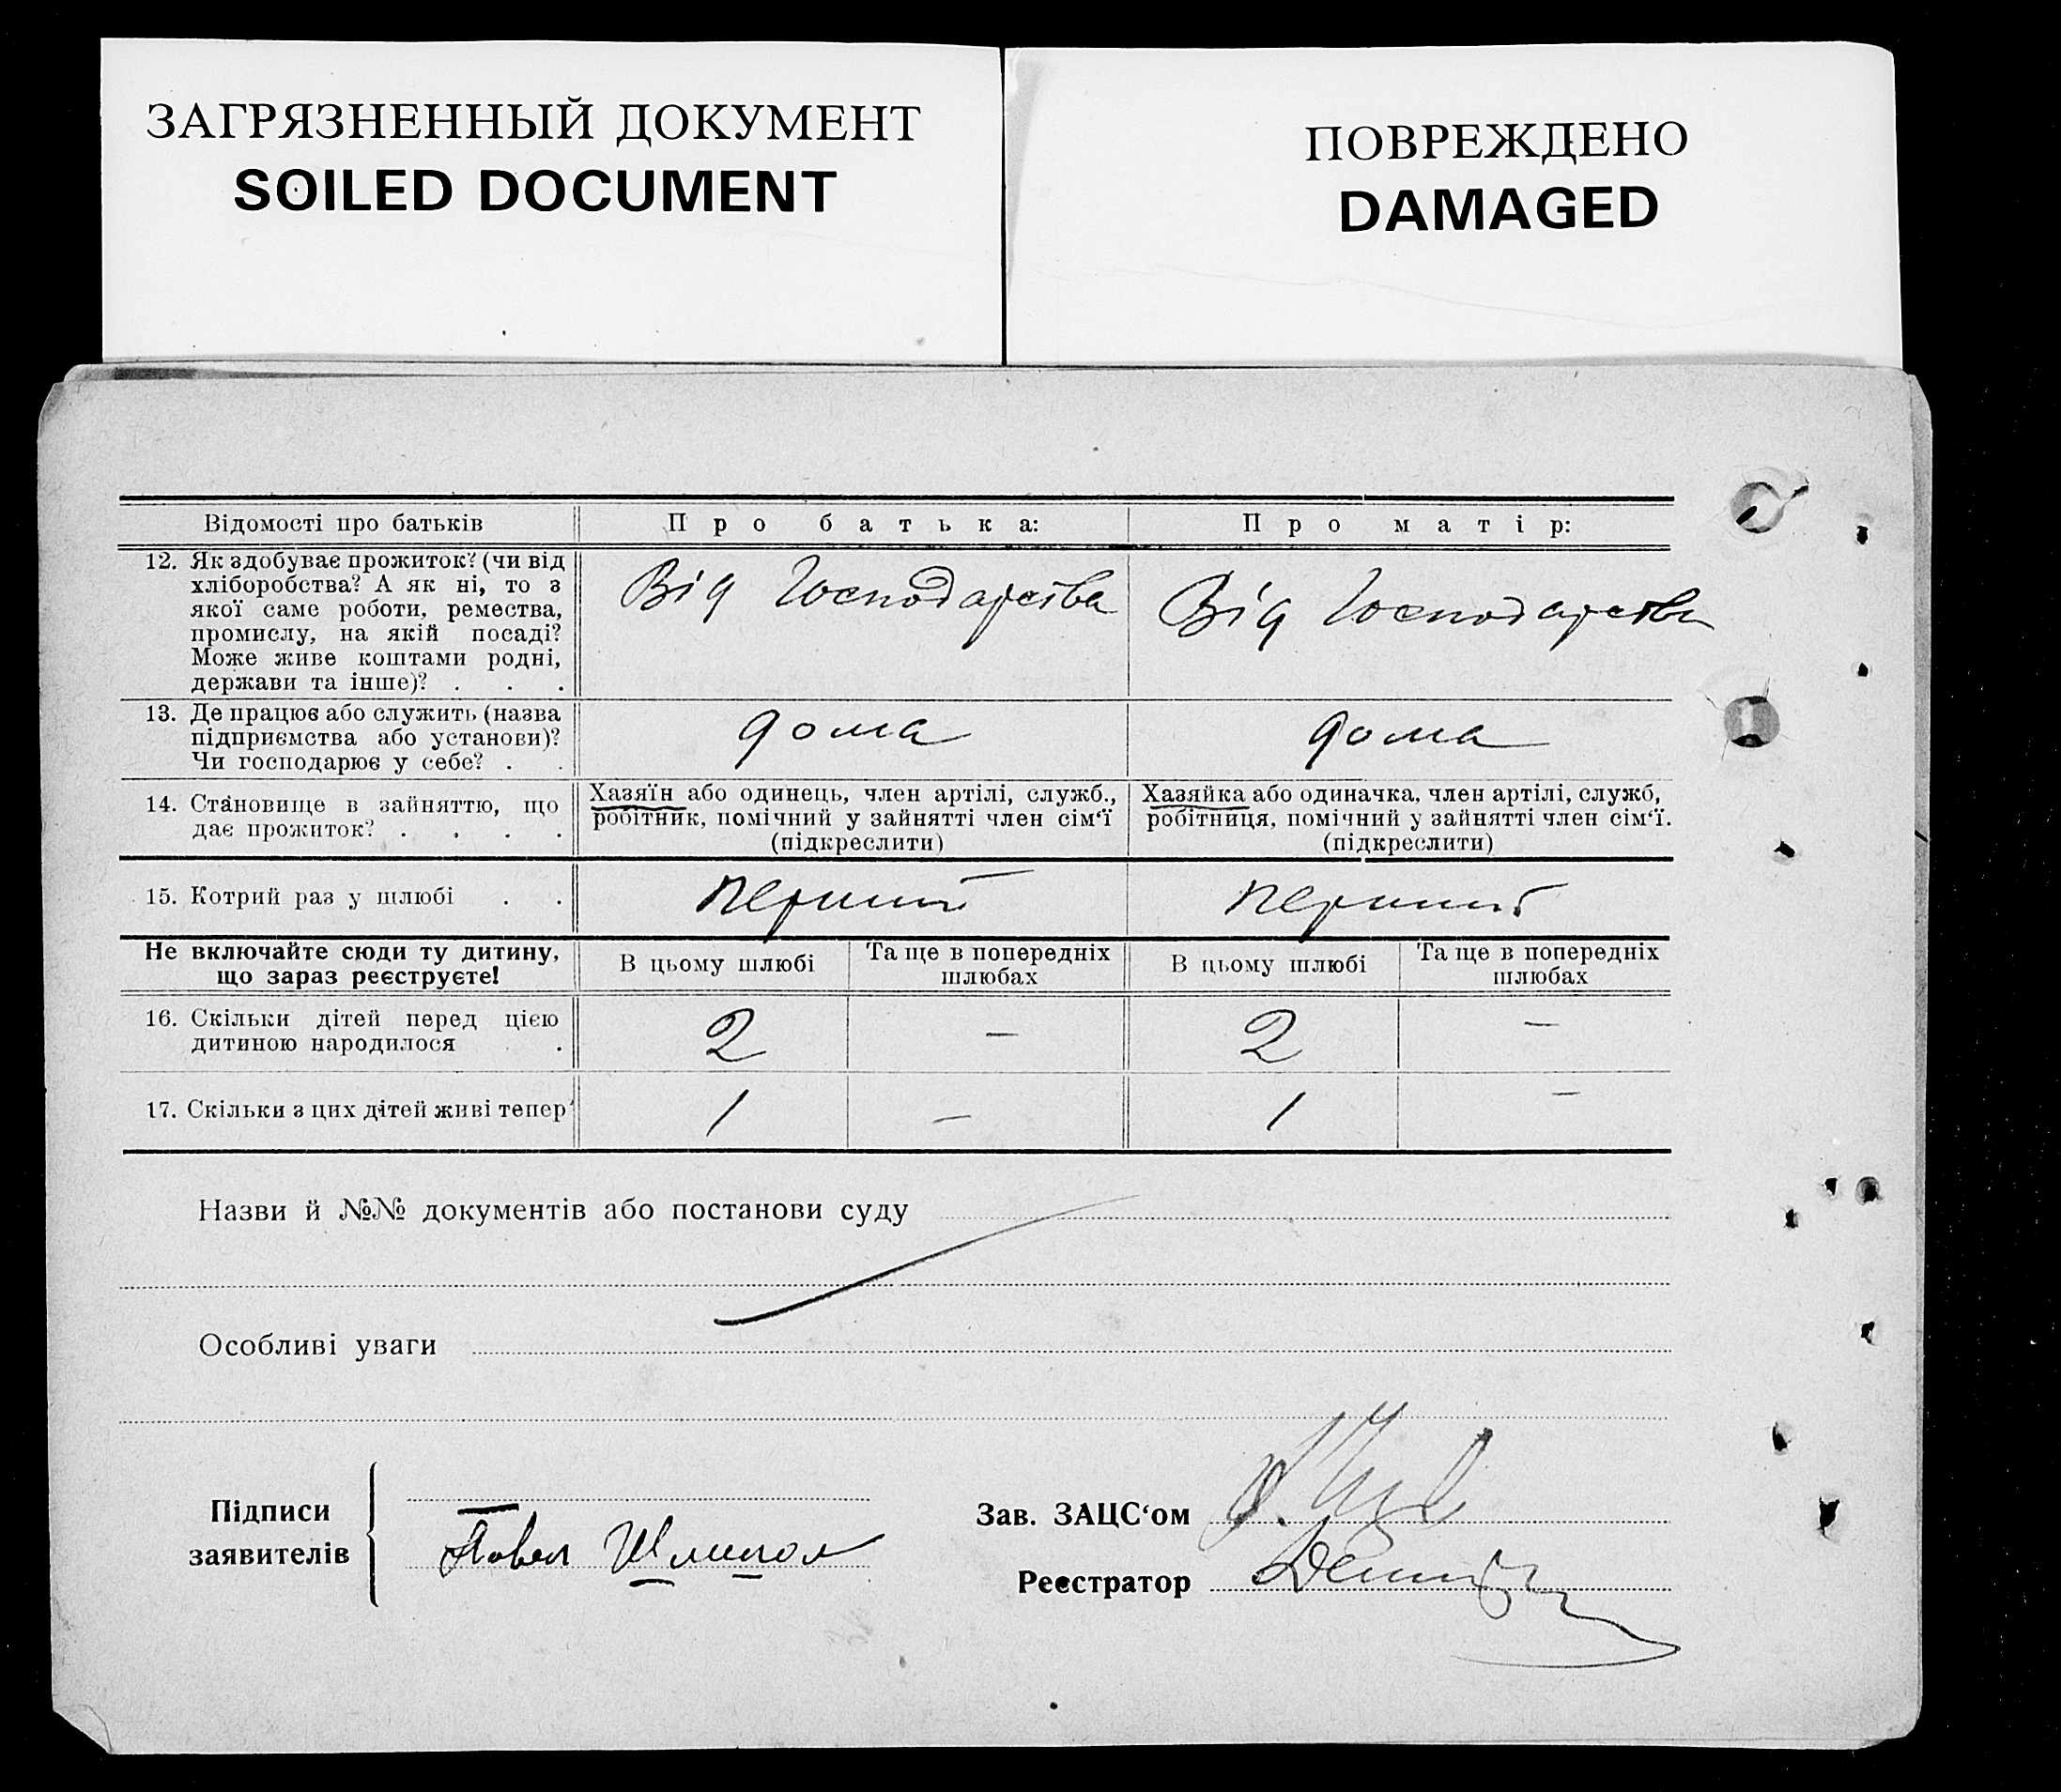 ЗАГРЯЗНЕННЫЙ ДОКУМЕНТ
SOILED DOCUMENT
ПОВРЕЖДЕНО
DAMAGED
Відомості про батьків
Про батька:
Про матір:
12. Як здобуває прожиток? (чи від
хліборобства? А як ні, то з
якої саме роботи, ремества,
промислу, на якій посаді?
Може живе коштами родні,
держави та інше)? . . .
Від Господарства
Від Господарства
13. Де працює або служить (назва
підприємства або установи)?
Чи господарює у себе? . .
дома
дома
14. Становище в зайняттю, що
дає прожиток? . . . .
Хазяїн або одинець, член артілі, служб.,
робітник, помічний у зайнятті член сім‘ї
(підкреслити)
Хазяйка або одиначка, член артілі, служб,
робітниця, помічний у зайнятті член сім‘ї.
(підкреслити)
15. Котрий раз у шлюбі . .
перший
перший
Не включайте сюди ту дитину,
що зараз реєструєте!
В цьому шлюбі
Та ще в попередніх
шлюбах
В цьому шлюбі
Та ще в попередніх
шлюбах
16. Скільки дітей перед цією
дитиною народилося .
2
—
2
—
17. Скільки з цих дітей живі тепер
1
—
1
—
Назви й №№ документів або постанови суду
Особливі уваги
Підписи
заявителів
Павел
Зав. ЗАЦС‘ом
Реєстратор